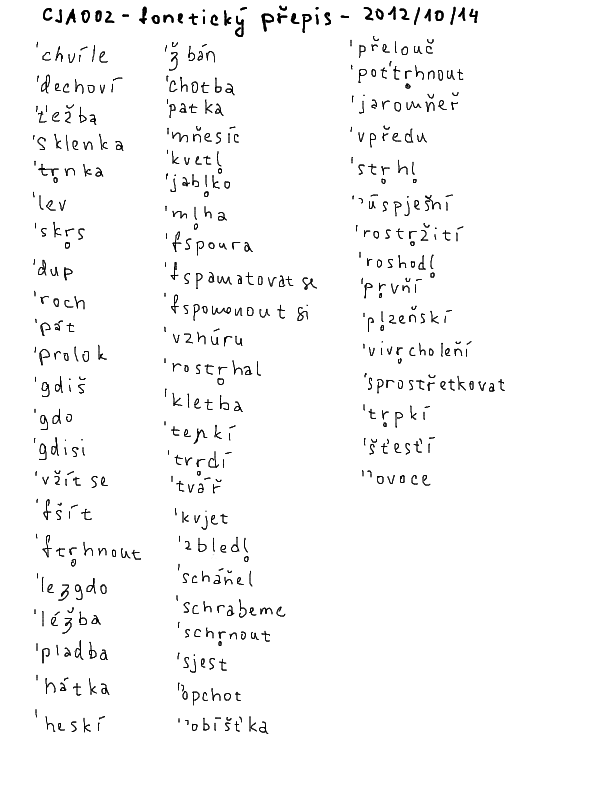 CJA002 - fonetický přepis - 2012/10/14
'chvíle
'dechoví
'ťežba
'sklenka
'tr̥nka
'lev
'skr̥s
'dup
'roch
'pát
'prolok
'gdiš
'gdo
'gdisi
'vžít se
'fšít
'ftr̥hnout
'leʒgdo
'léǯba
'pladba
'hátka
'heskí
'ǯbán
'chotba
'patka
'mňesíc
'kvetl̥
'jabl̥ko
'ml̥ha
'fspoura
'fspamatovat se
'fspomonout si
'vzhúru
'rostr̥hal
'kletba
'tepkí
'tvr̥dí
'tvář
'kvjet
'zbledl̥
'scháňel
'schrabeme
'schr̥nout
'sjest
'ʔopchot
'ʔobíšťka
'přelouč
'poťtr̥hnout
'jaromňeř
'vpředu
'str̥hl̥
'ʔúspješňí
'rostr̥žití
'roshodl̥
'pr̥vňí
'pl̥zeňskí
'vivr̥choleňí
'sprostřetkovat
'tr̥pkí
'šťesťí
'ʔovoce